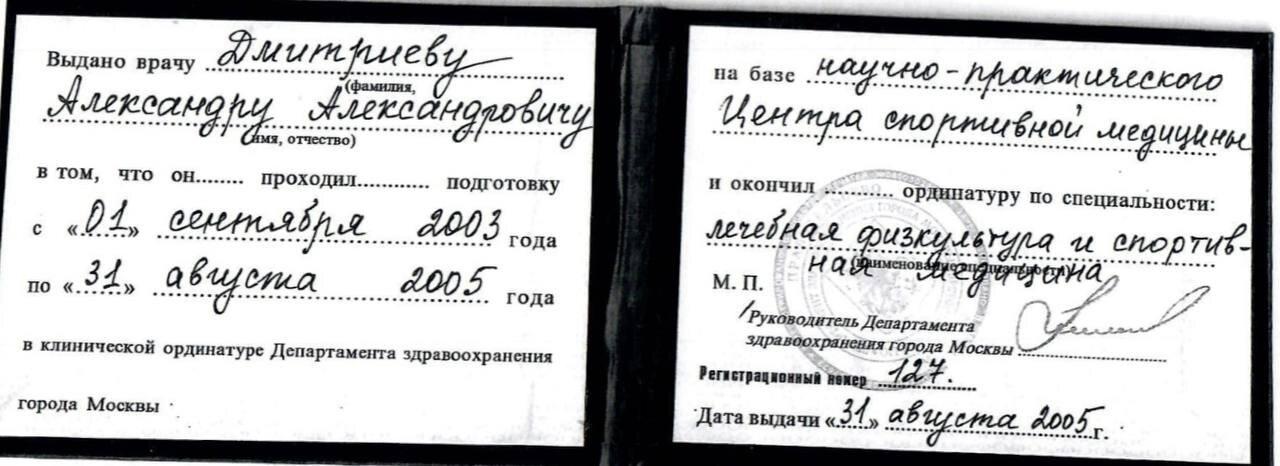 Выдано врачу Дмитриеву
(фамилия,
Александру Александровичу
имя, отчество)
в том, что он........ проходил............ подготовку
с «01» сентября 2003 года
по «31» августа 2005 года
в клинической ординатуре Департамента здравоохранения
города Москвы
на базе научно-практического
Центра спортивной медицины
и окончил ........... ординатуру по специальности:
лечебная физкультура и спортив-
(наименование специальности)
ная медицина
М. П.
Руководитель Департамента
здравоохранения города Москвы
Регистрационный номер 127.
Дата выдачи «31» августа 2005 г.